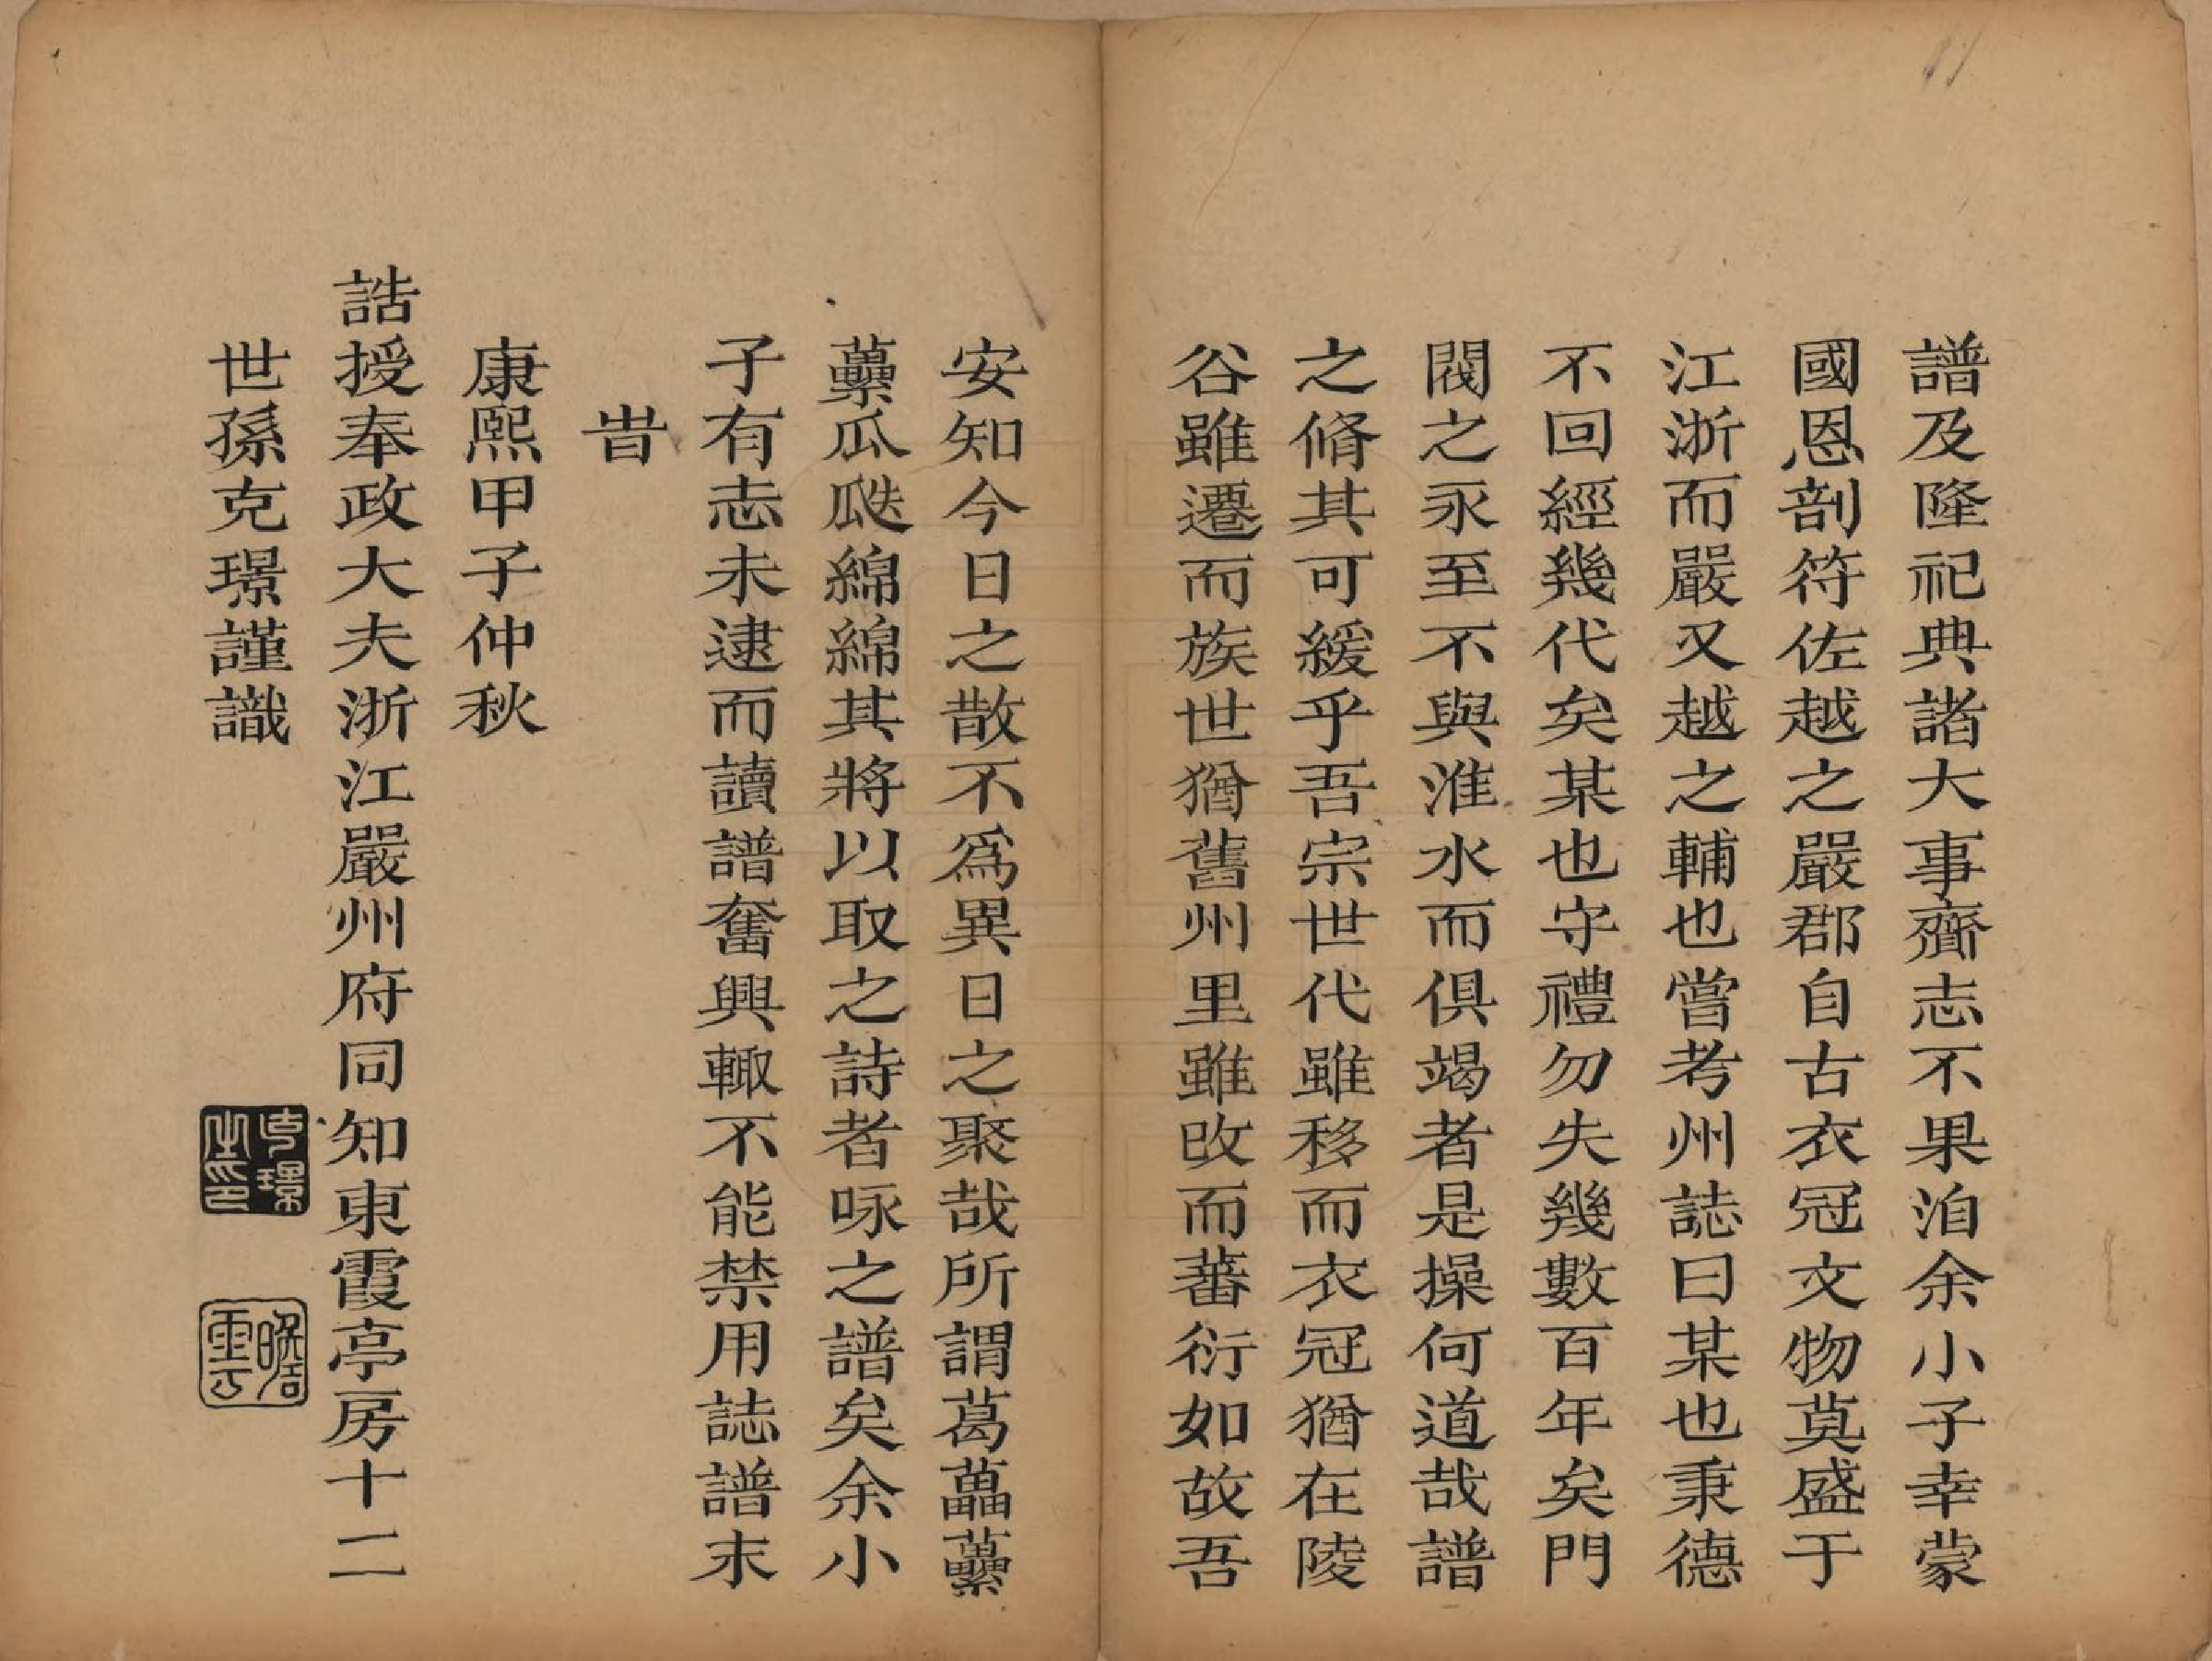 譜及隆祀典諸大事齎志不果洎余小子幸蒙
國恩剖符佐越之嚴郡自古衣冠文物莫盛于
江浙而嚴又越之輔也嘗考州誌曰某也秉德
不回經幾代矣某也守禮勿失幾數百年矣門
閥之永至不與淮水而俱竭者是操何道哉譜
之脩其可緩乎吾宗世代雖移而衣冠猶在陵
谷雖遷而族世猶舊州里雖改而蕃衍如故吾
安知今日之散不為異日之聚哉所謂葛藟虆
虆瓜瓞綿綿其將以取之詩者咏之譜矣余小
子有志未逮而讀譜奮興輙不能禁用誌譜末
旹
康熙甲子仲秋
誥授奉政大夫浙江嚴州府同知東霞亭房十二
世孫克璟謹識
克璟之印